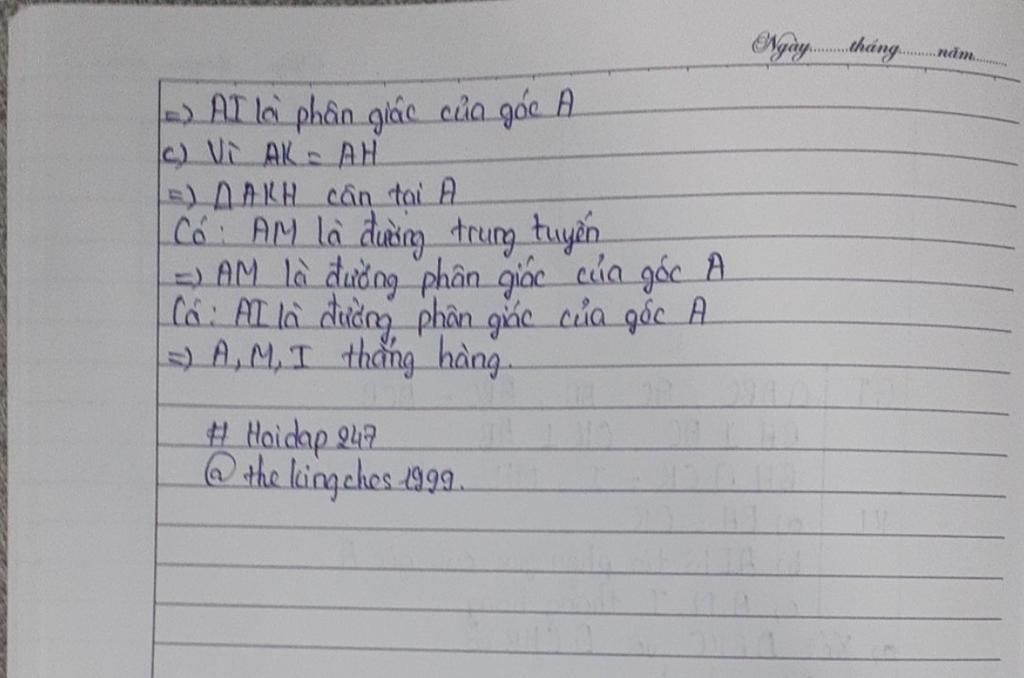 Ngày..........tháng..........năm..........
=) AI là phân giác của góc A
c) Vì AK = AH
=) Δ AKH cân tại A
Có: AM là đường trung tuyến
=) AM là đường phân giác của góc A
Có: AI là đường phân giác của góc A
=) A, M, I thẳng hàng.
# Hoidap 247
@ the kingches 1999.